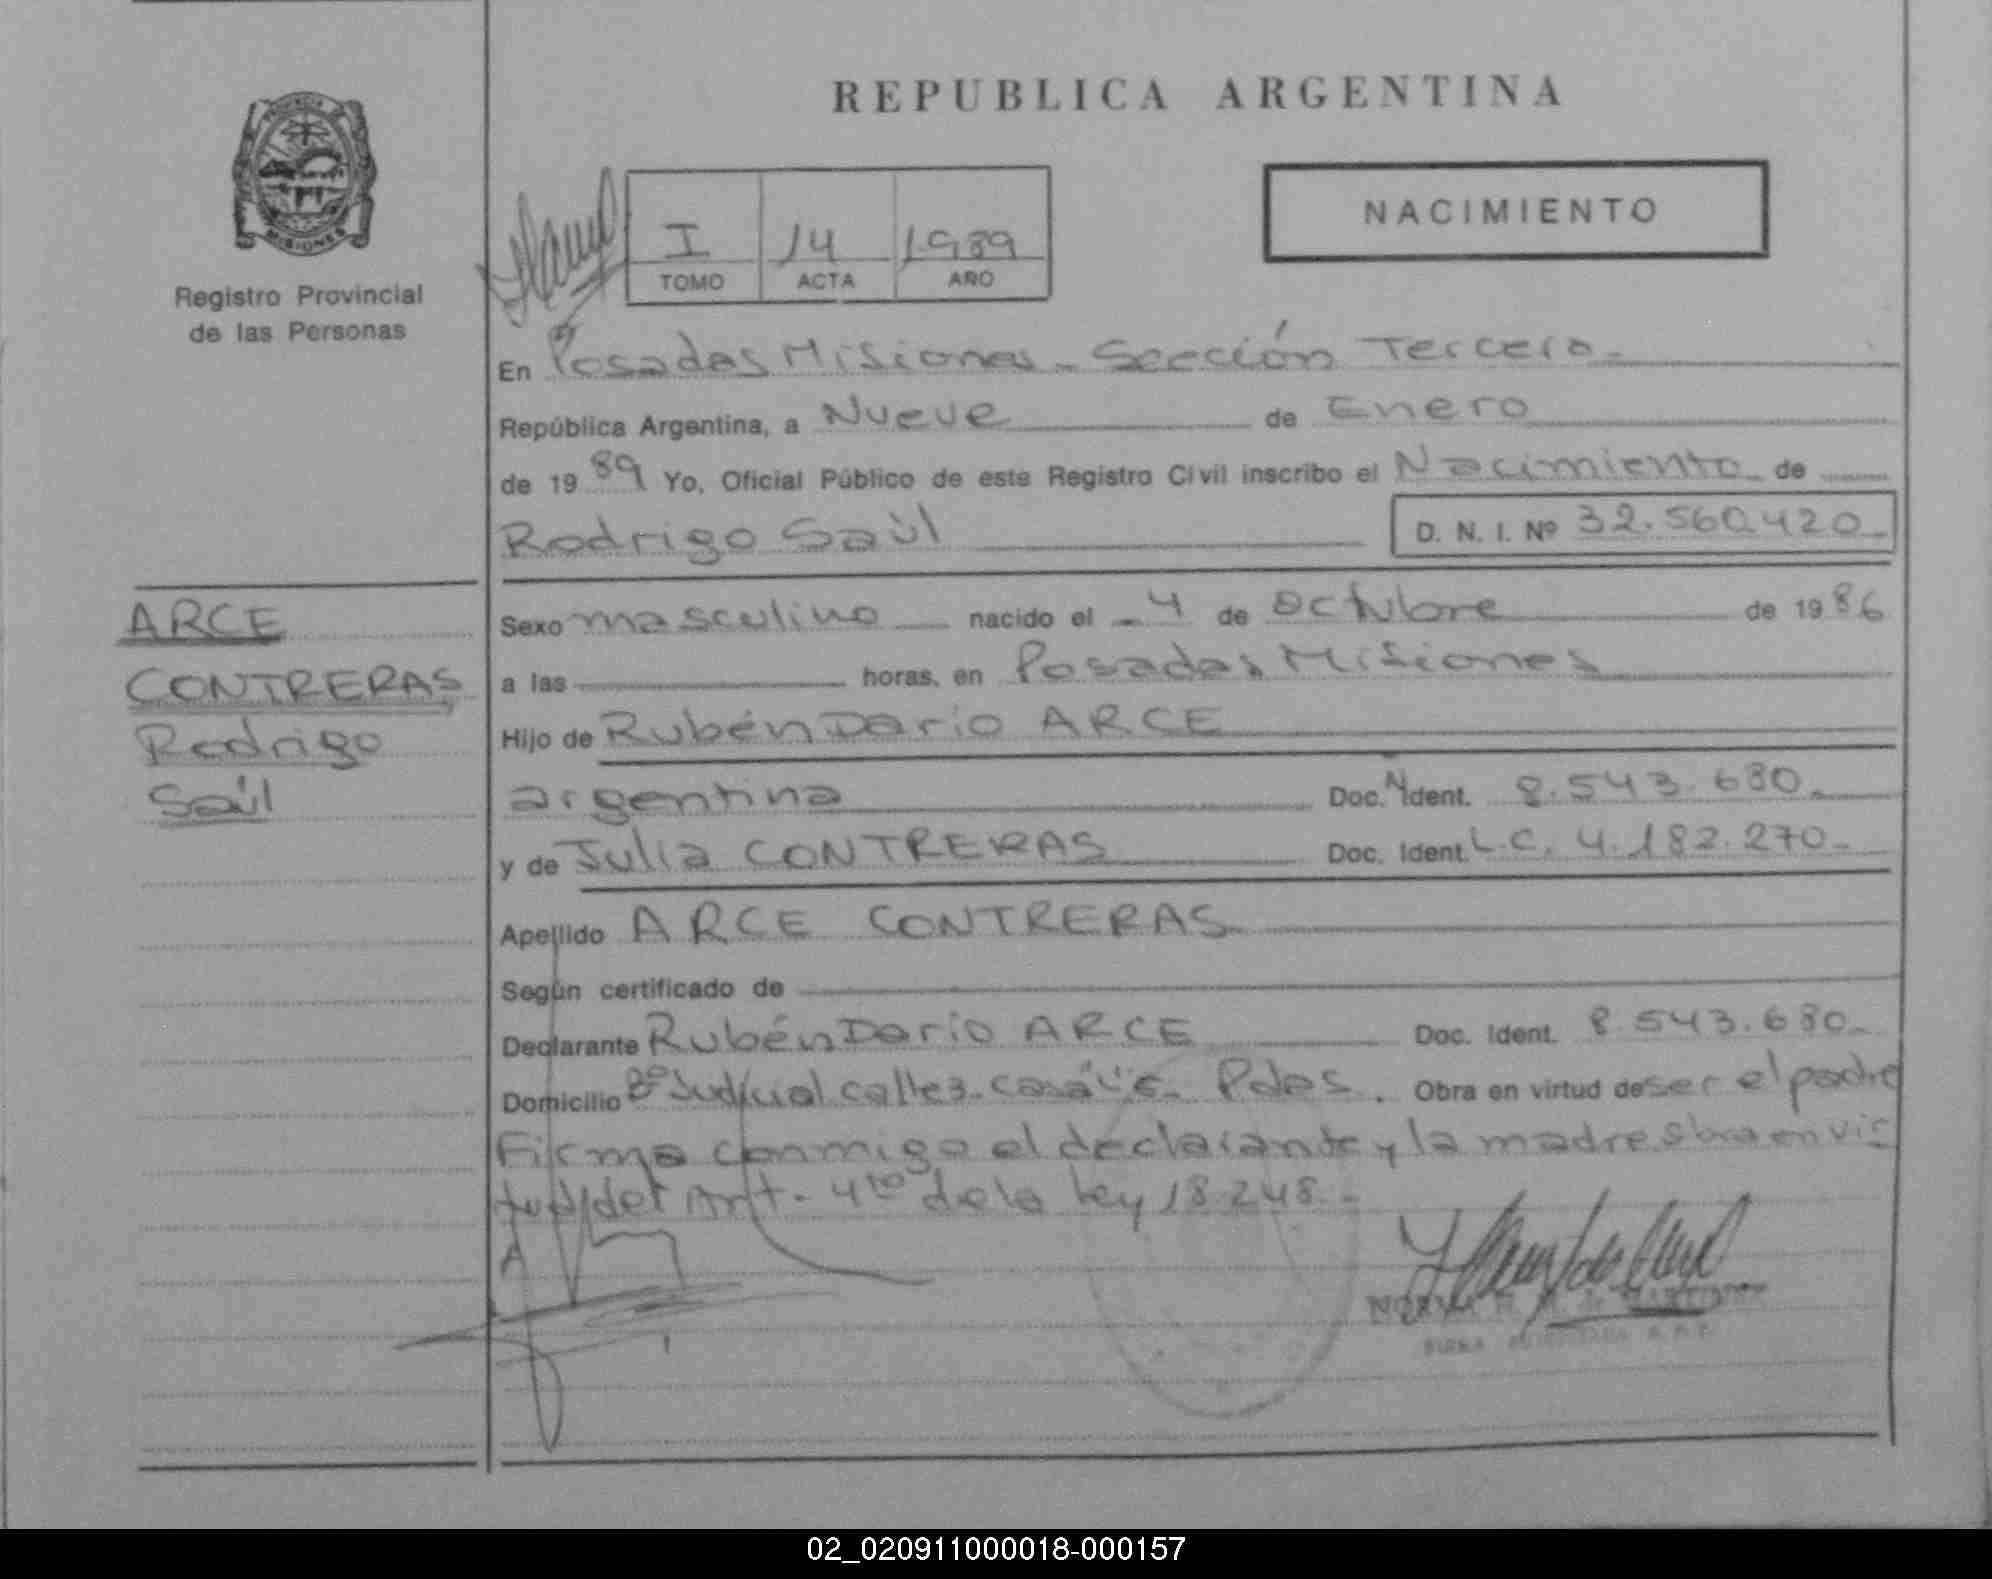 REPUBLICA ARGENTINA
PROVINCIA DE
MISIONES
Registro Provincial
de las Personas
I 14 1989
TOMO ACTA AÑO
NACIMIENTO
En Posadas Misiones - Sección Tercera -
República Argentina, a Nueve de Enero
de 1989 Yo, Oficial Público de este Registro Civil inscribo el Nacimiento de
Rodrigo Saúl D. N. I. Nº 32.560.420-
ARCE
CONTRERAS,
Rodrigo
Saúl
Sexo masculino nacido el - 4 de Octubre de 1986
a las horas, en Posadas Misiones
Hijo de Rubén Dario ARCE
argentina Doc. Ident. 8.543.680-
y de Julia CONTRERAS Doc. Ident. L.C. 4.182.270-
Apellido ARCE CONTRERAS
Según certificado de
Declarante Rubén Dario ARCE Doc. Ident. 8.543.680-
Domicilio Bº Judicial calle 3- casa Pdas. Obra en virtud de ser el padre
Firma conmigo el declarante y la madre. Obra en vir
tud del Art. 4to de la ley 18.248.-
NORMA
02_020911000018-000157